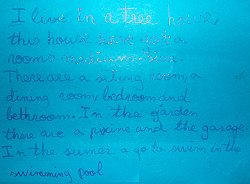 I live in a tree house,
this house
rooms medium
There are a siting room, a
dining room bedroom and
bethroom. In the garden
there are a piscine and the garage
In the sumer a go to swim in the
swimming pool